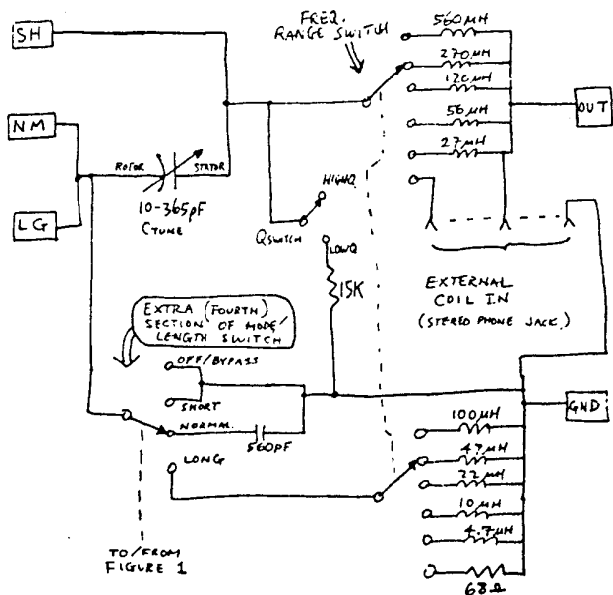 SH
FREQ.
RANGE SWITCH
560μH
270μH
120μH
56μH
27μH
OUT
NM
ROTOR
STATOR
10-365pF
CTUNE
LG
HIGHQ
QSWITCH
LOWQ
15K
EXTERNAL
COIL IN
(STEREO PHONE JACK)
EXTRA (FOURTH)
SECTION OF MODE/
LENGTH SWITCH
OFF/BYPASS
SHORT
NORMAL
560PF
LONG
GND
100μH
47μH
22μH
10μH
4.7μH
68Ω
TO/FROM
FIGURE 1